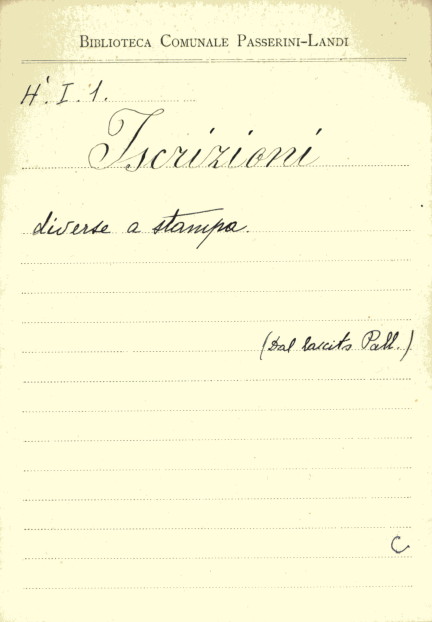 BIBLIOTECA COMUNALE PASSERINI-LANDI
H'. I. 1.
Iscrizioni
diverse a stampa.
(Dal lascito Pall.)
C